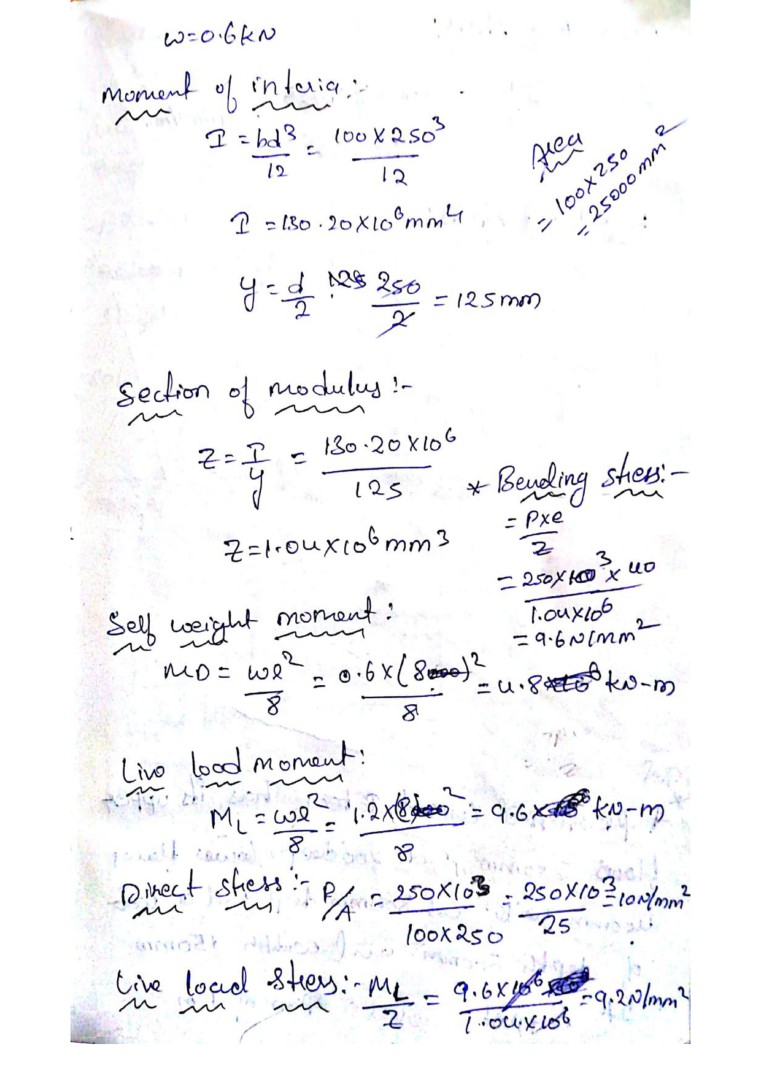 w=0.6kN
Moment of interia:-
I = bd³/12 = 100X250³/12
Area
= 100X250
= 25000mm²
I = 130.20X10⁶mm⁴
y = d/2 = 250/2 = 125mm
Section of modulus:-
Z = I/y = 130.20X10⁶/125
* Bending stress:-
= Pxe/Z
Z=1.04X10⁶mm³
= 250X10³X40/1.04X10⁶
= 9.6N/mm²
Self weight moment:
MD = wl²/8 = 0.6X(8)²/8 = 4.8 kN-m
Live load moment:
M_L = wl²/8 = 1.2X8²/8 = 9.6 kN-m
Direct stress:- P/A = 250X10³/100X250 = 250X10³/25 = 10N/mm²
Live load stress:- M_L/Z = 9.6X10⁶/1.04X10⁶ = 9.2N/mm²